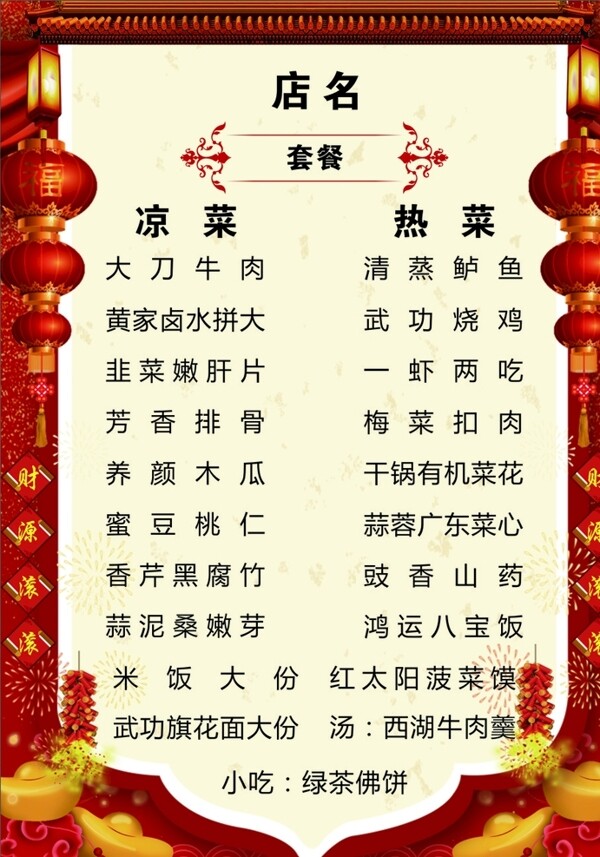 店名
套餐
凉菜 热菜
大刀牛肉 清蒸鲈鱼
黄家卤水拼大 武功烧鸡
韭菜嫩肝片 一虾两吃
芳香排骨 梅菜扣肉
养颜木瓜 干锅有机菜花
蜜豆桃仁 蒜蓉广东菜心
香芹黑腐竹 豉香山药
蒜泥桑嫩芽 鸿运八宝饭
米饭大份 红太阳菠菜馍
武功旗花面大份 汤：西湖牛肉羹
小吃：绿茶佛饼
福
财源滚滚
财源滚滚